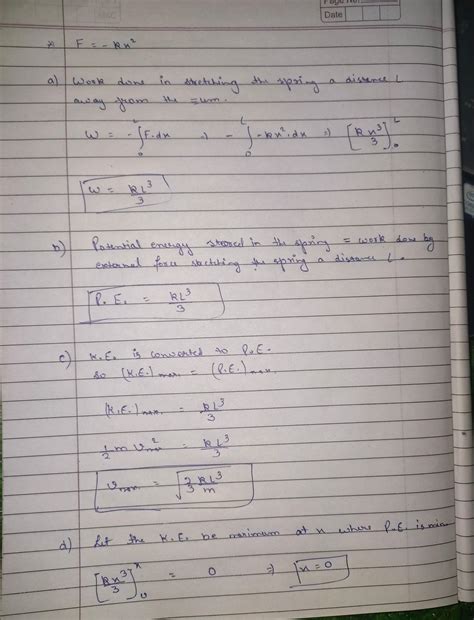 Page No.
Date
* F = - kx²
a) Work done in stretching the spring a distance L
away from the =um.
W = -∫₀ᴸ F.dx ⇒ -∫₀ᴸ -kx².dx ⇒ [kx³/3]₀ᴸ
W = kL³/3
b) Potential energy stored in the spring = work done by
external force stretching the spring a distance L.
P.E. = kL³/3
c) K.E. is converted to P.E.
so (K.E.)max. = (P.E.)max.
(K.E.)max. = kL³/3
1/2 m v²max = kL³/3
vmax = √(2/3 kL³/m)
d) Let the K.E. be maximum at x where P.E. is min
[kx³/3]₀ˣ = 0 ⇒ x = 0